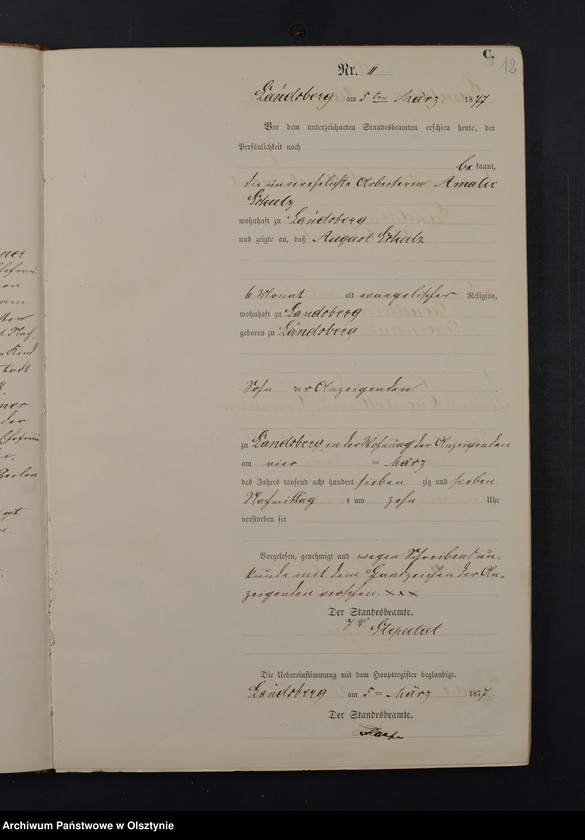 C.
12
Nr. 11
Landsberg am 5ten März 1877
Vor dem unterzeichneten Standesbeamten erschien heute, der
Persönlichkeit nach
be kannt,
die unverehelichte Arbeiterin Amalie
Schulz
wohnhaft zu Landsberg
und zeigte an, daß August Schulz
6 Monat alt evangelischer Religion,
wohnhaft zu Landsberg
geboren zu Landsberg
Sohn der Anzeigenden
zu Landsberg, in der Wohnung der Anzeigenden
am vier ten März
des Jahres tausend acht hundert sieben zig und sieben
Nachmittag s um zehn Uhr
verstorben sei
Vorgelesen, genehmigt und wegen Schreibensun-
kunde mit dem Handzeichen der An-
zeigenden versehen. xxx
Der Standesbeamte.
Die Uebereinstimmung mit dem Hauptregister beglaubigt.
Landsberg am 5ten März 1877
Der Standesbeamte.
Archiwum Państwowe w Olsztynie